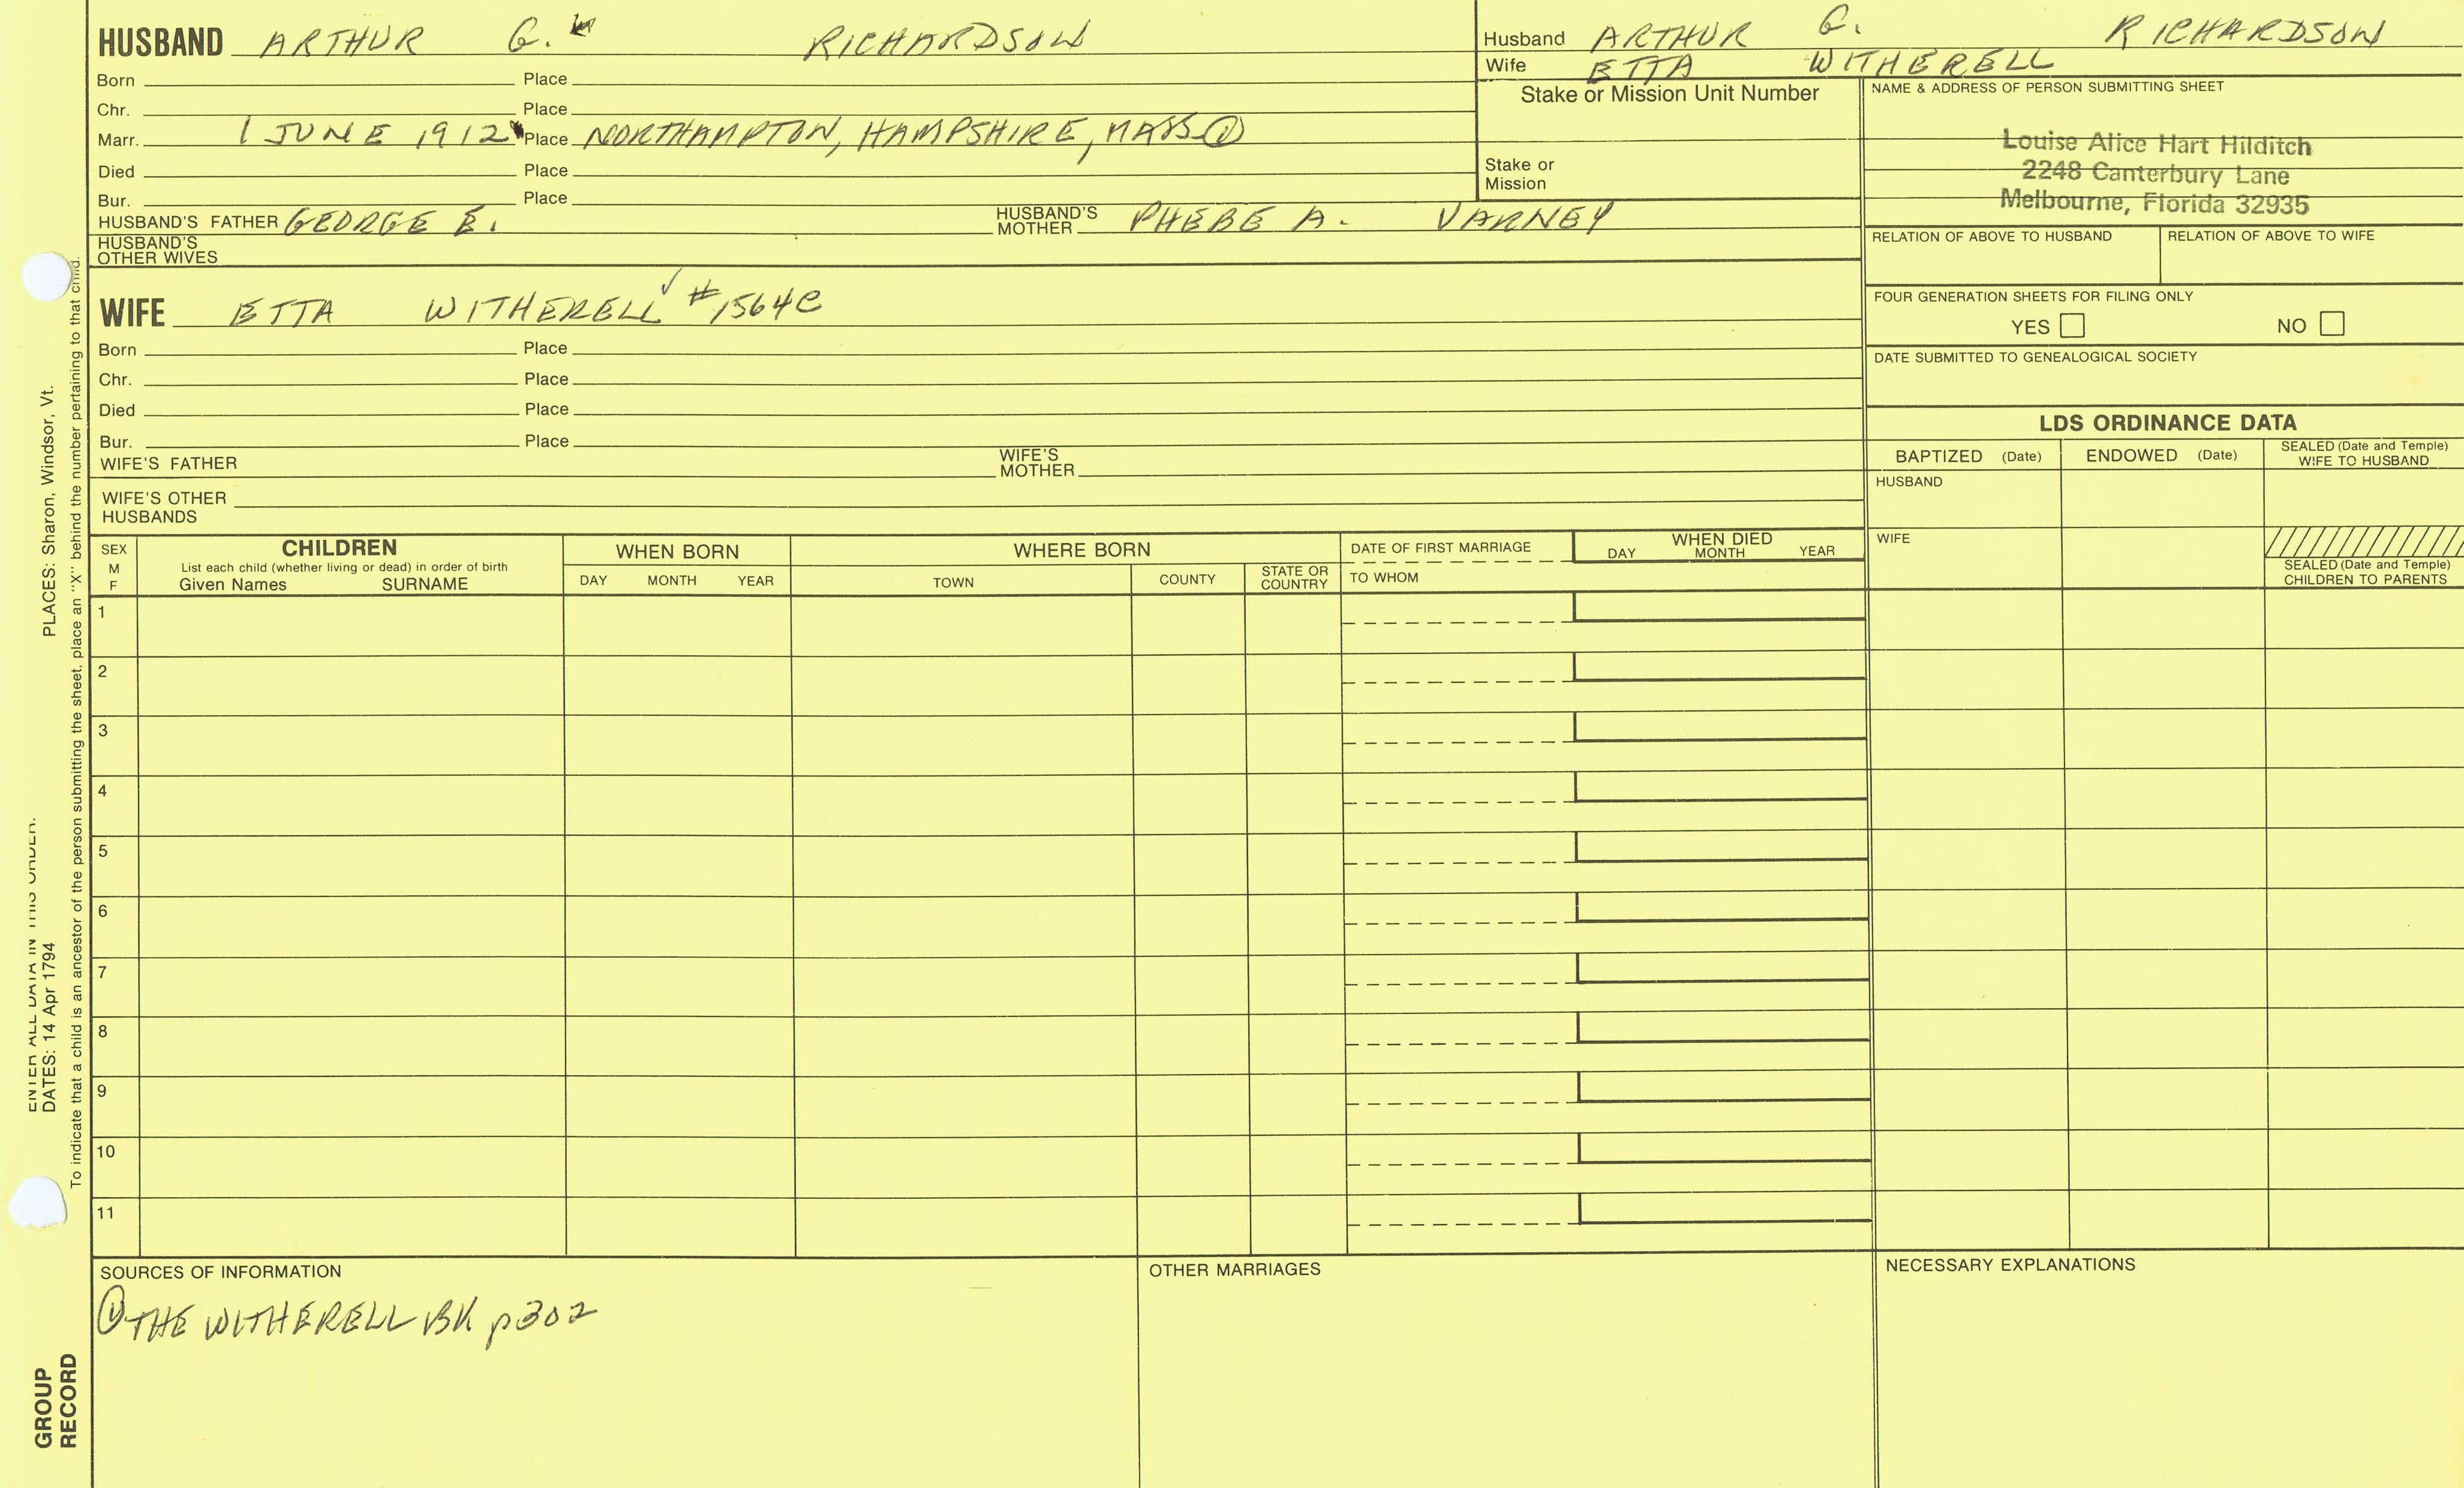 HUSBAND ARTHUR G. RICHARDSON
Born Place
Chr. Place
Marr. 1 JUNE 1912 Place NORTHAMPTON, HAMPSHIRE, MASS ①
Died Place
Bur. Place
HUSBAND'S FATHER GEORGE E. HUSBAND'S MOTHER PHEBE A. VARNEY
HUSBAND'S OTHER WIVES
WIFE ETTA WITHERELL ✓ #1564C
Born Place
Chr. Place
Died Place
Bur. Place
WIFE'S FATHER WIFE'S MOTHER
WIFE'S OTHER HUSBANDS
Husband ARTHUR G. RICHARDSON
Wife ETTA WITHERELL
Stake or Mission Unit Number
Stake or
Mission
NAME & ADDRESS OF PERSON SUBMITTING SHEET
Louise Alice Hart Hilditch
2248 Canterbury Lane
Melbourne, Florida 32935
RELATION OF ABOVE TO HUSBAND RELATION OF ABOVE TO WIFE
FOUR GENERATION SHEETS FOR FILING ONLY
YES NO
DATE SUBMITTED TO GENEALOGICAL SOCIETY
LDS ORDINANCE DATA
BAPTIZED (Date) ENDOWED (Date) SEALED (Date and Temple) WIFE TO HUSBAND
HUSBAND
WIFE
SEALED (Date and Temple)
CHILDREN TO PARENTS
SEX M F
CHILDREN
List each child (whether living or dead) in order of birth
Given Names SURNAME
WHEN BORN
DAY MONTH YEAR
WHERE BORN
TOWN COUNTY STATE OR COUNTRY
DATE OF FIRST MARRIAGE
TO WHOM
WHEN DIED
DAY MONTH YEAR
1
2
3
4
5
6
7
8
9
10
11
SOURCES OF INFORMATION
① THE WITHERELL BK p302
OTHER MARRIAGES
NECESSARY EXPLANATIONS
ENTER ALL DATA IN THIS ORDER:
DATES: 14 Apr 1794 PLACES: Sharon, Windsor, Vt.
To indicate that a child is an ancestor of the person submitting the sheet, place an "X" behind the number pertaining to that child.
GROUP
RECORD